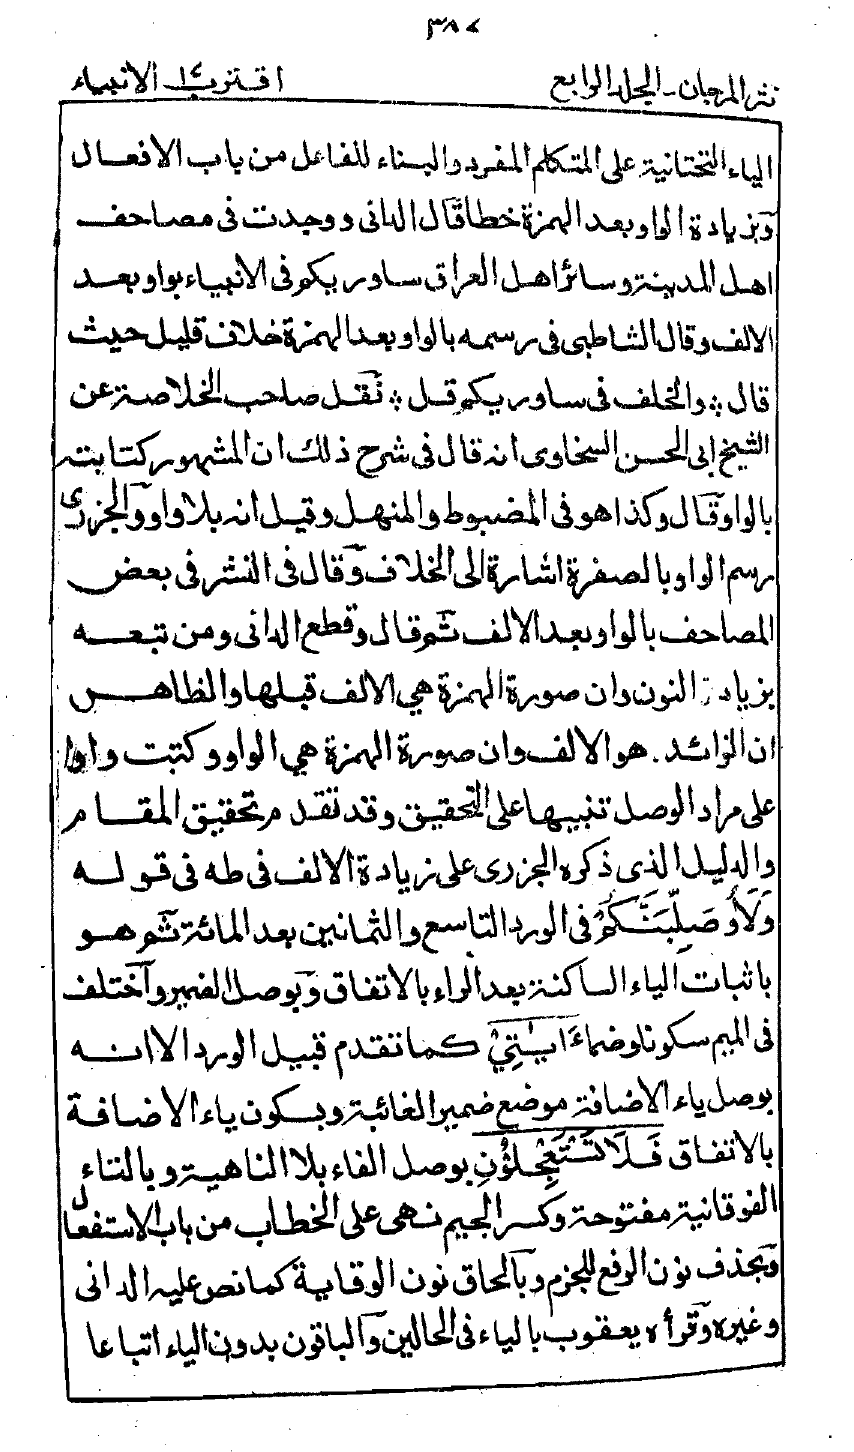 ٣٨٧
نثر المرجان ـ الجلد الرابع
اقترب ١٤ الانبياء
الياء التحتانية على المتكلم المفرد والبناء للفاعل من باب الافعال
وبزيادة الواو بعد الهمزة خطا قال الدانى ووجدت فى مصاحف
اهل المدينة وسائر اهل العراق ساوريكم فى الانبياء بواو بعد
الالف وقال الشاطبى فى رسمه بالواو بعد الهمزة خلاف قليل حيث
قال ؞ والخلف فى ساوريكم قل ؞ نقل صاحب الخلاصة عن
الشيخ ابى الحسن السخاوى انه قال فى شرح ذلك ان المشهور كتابته
بالواو وقال وكذا هو فى المضبوط والمنهل وقيل انه بلا واو والجزرى
رسم الواو بالصفرة اشارة الى الخلاف وقال فى النشر فى بعض
المصاحف بالواو بعد الالف ثم قال وقطع الدانى ومن تبعه
بزيادة النون وان صورة الهمزة هي الالف قبلها والظاهر
ان الزائد هو الالف وان صورة الهمزة هي الواو وكتبت واوا
على مراد الوصل تنبيها على التحقيق وقد تقدم تحقيق المقام
والدليل الذى ذكره الجزرى على زيادة الالف فى طه فى قوله
وَلَاُوصَلِّبَنَّكُمْ فى الورد التاسع والثمانين بعد المائة ثم هو
باثبات الياء الساكنة بعد الراء بالاتفاق وبوصل الضمير واختلف
فى الميم سكونا وضما ءَايٰتِيْ كما تقدم قبيل الورد الا انه
بوصل ياء الاضافة موضع ضمير الغائبة وبسكون ياء الاضافة
بالاتفاق فَلَا تَسْتَعْجِلُوْنِ بوصل الفاء بلا الناهية وبالتاء
الفوقانية مفتوحة وكسر الجيم نهى على الخطاب من باب الاستفعال
وبحذف نون الرفع للجزم وبالحاق نون الوقاية كما نص عليه الدانى
وغيره وقرأه يعقوب بالياء فى الحالين والباقون بدون الياء اتباعا